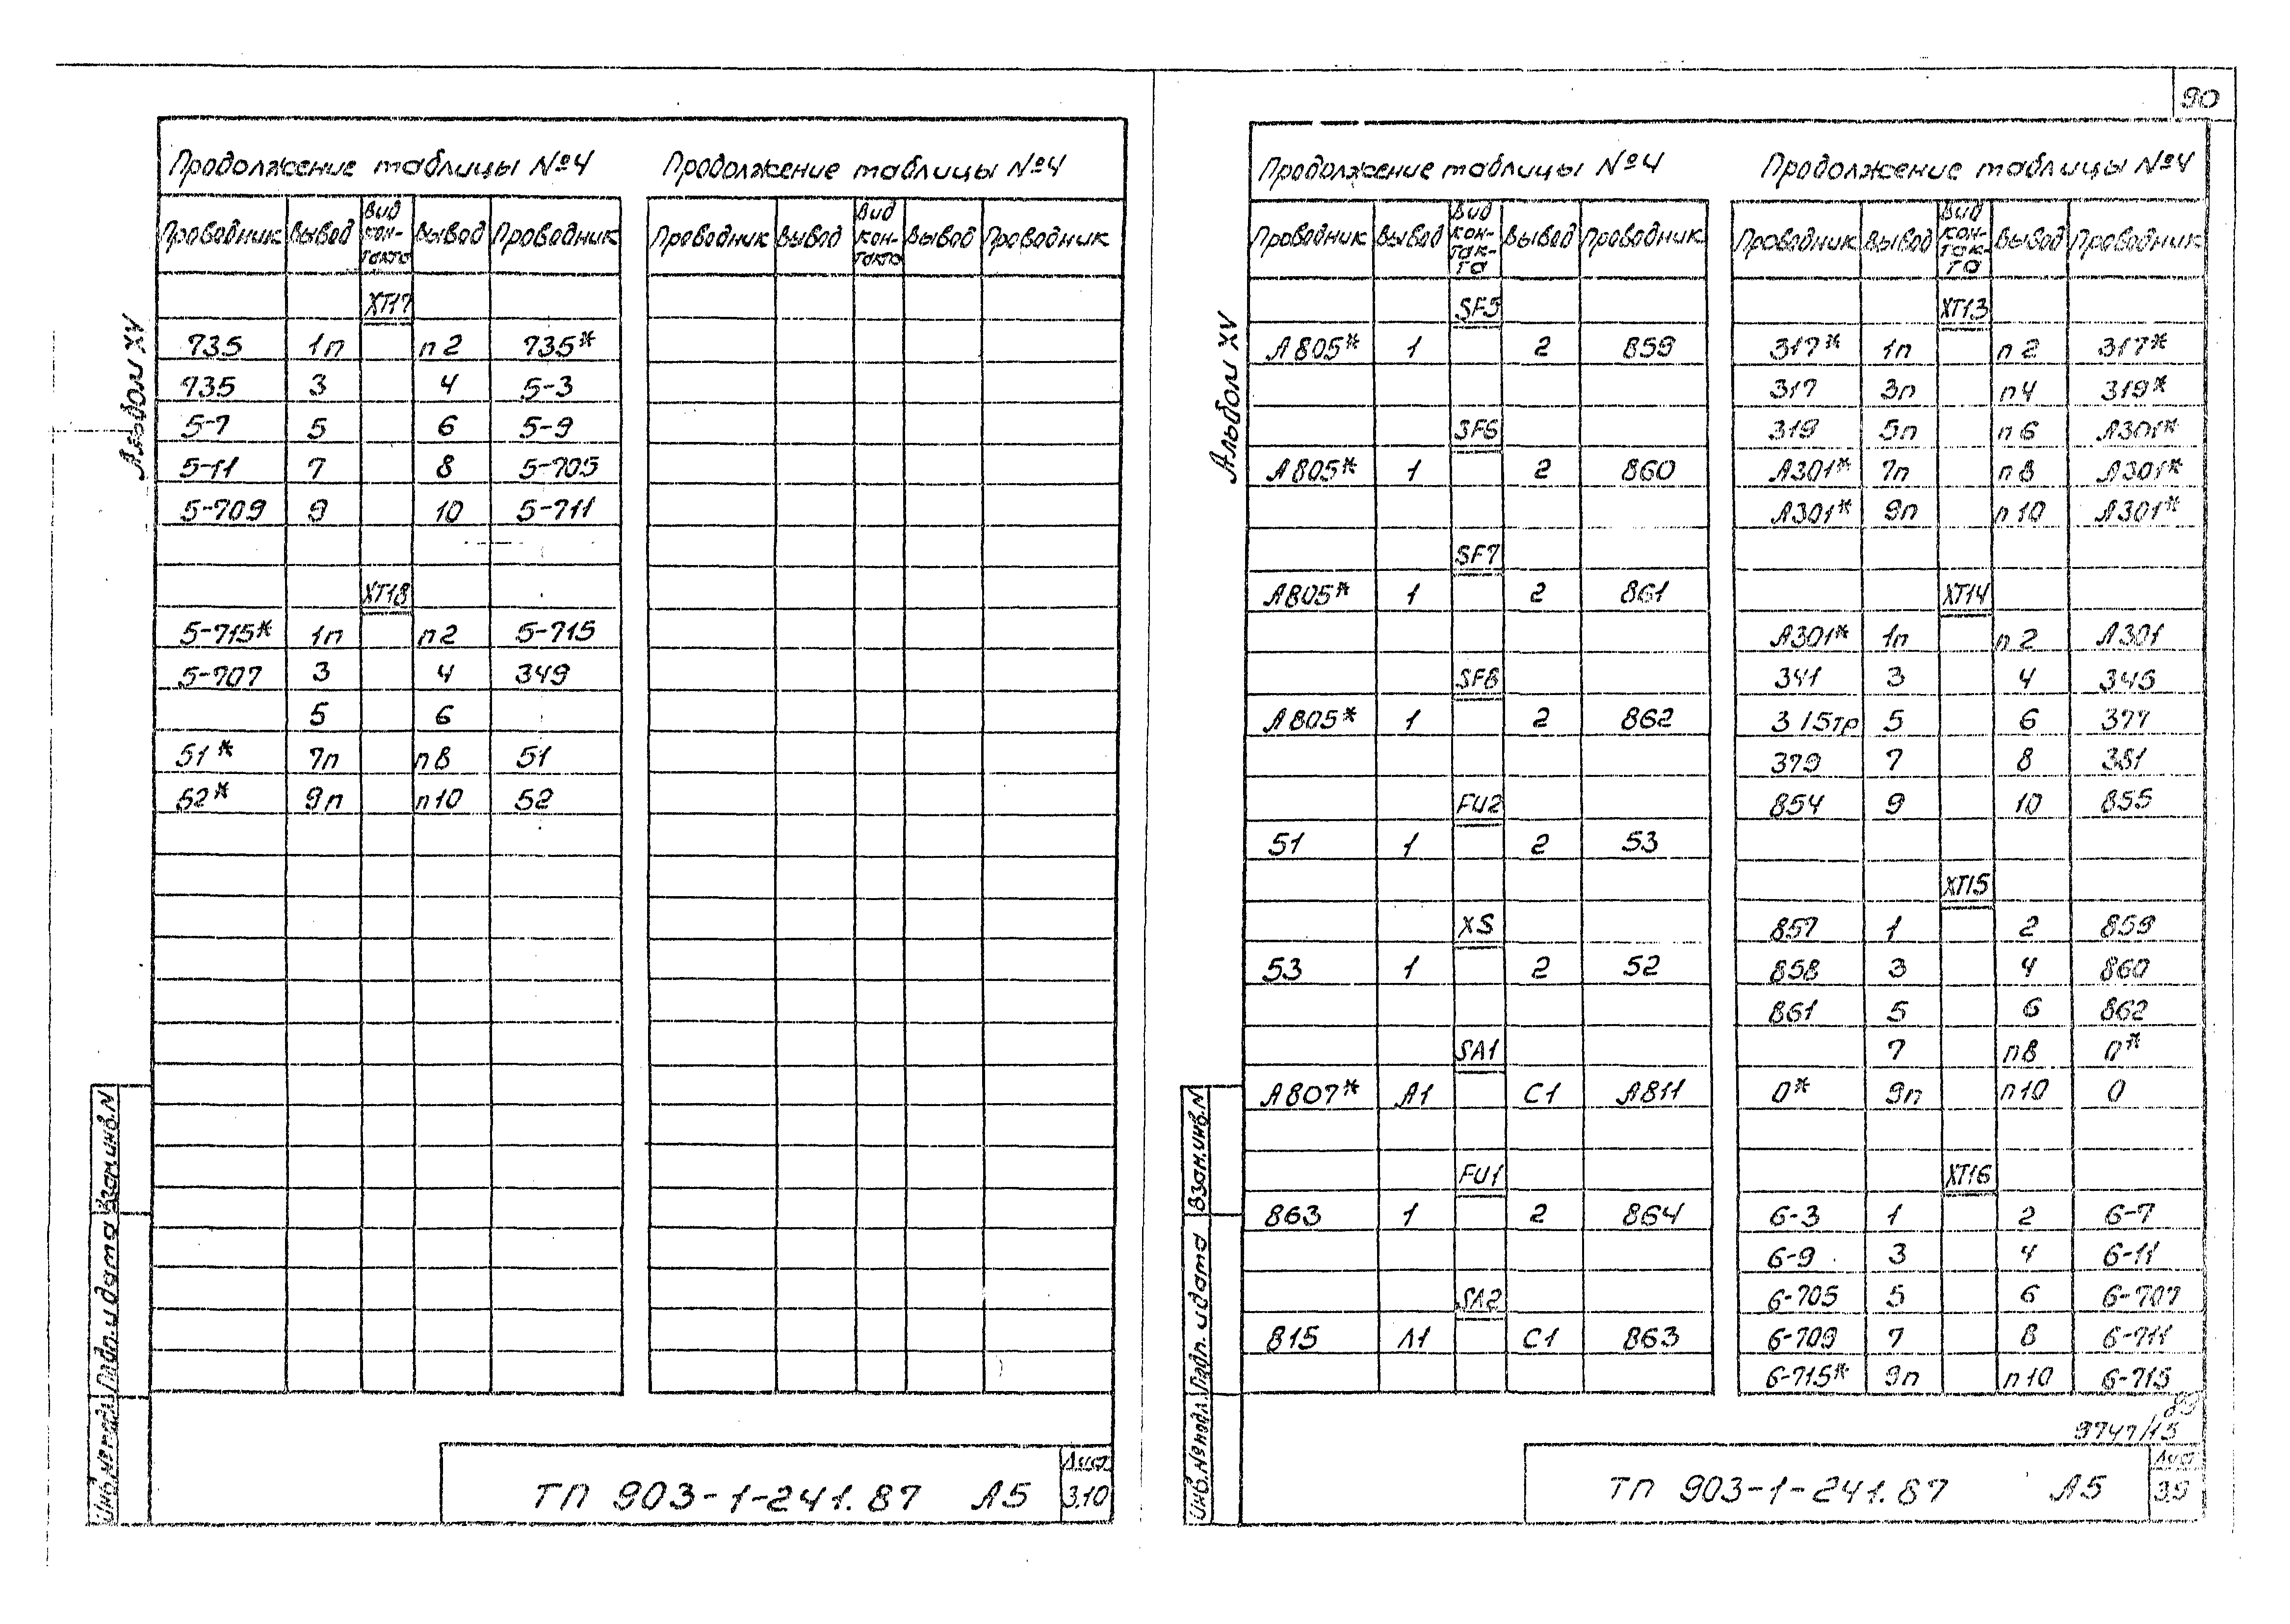 90
Альбом XV
Продолжение таблицы №4
Проводник Вывод Вид кон-такта Вывод Проводник
XT17
735 1п п2 735*
735 3 4 5-3
5-7 5 6 5-9
5-11 7 8 5-705
5-709 9 10 5-711
XT18
5-715* 1п п2 5-715
5-707 3 4 349
5 6
51* 7п п8 51
52* 9п п10 52
Продолжение таблицы №4
Проводник Вывод Вид кон-такта Вывод Проводник
Инв.№ подл. Подп. и дата Взам.инв.N
ТП 903-1-241.87 А5
Лист
3.10
Альбом XV
Продолжение таблицы №4
Проводник Вывод Вид кон-так-та Вывод Проводник
SF5
А805* 1 2 859
SF6
А805* 1 2 860
SF7
А805* 1 2 861
SF8
А805* 1 2 862
FU2
51 1 2 53
XS
53 1 2 52
SA1
А807* Л1 С1 А811
FU1
863 1 2 864
SA2
815 Л1 С1 863
Продолжение таблицы №4
Проводник Вывод Вид кон-так-та Вывод Проводник
XT13
317* 1п п2 317*
317 3п п4 319*
319 5п п6 А301*
А301* 7п п8 А301*
А301* 9п п10 А301*
XT14
А301* 1п п2 А301
341 3 4 345
315тр 5 6 377
379 7 8 381
854 9 10 855
XT15
857 1 2 859
858 3 4 860
861 5 6 862
7 п8 0*
0* 9п п10 0
XT16
6-3 1 2 6-7
6-9 3 4 6-11
6-705 5 6 6-707
6-709 7 8 6-711
6-715* 9п п10 6-715
89
9747/15
Инв.№ подл. Подп. и дата Взам.инв.N
ТП 903-1-241.87 А5
Лист
3.9